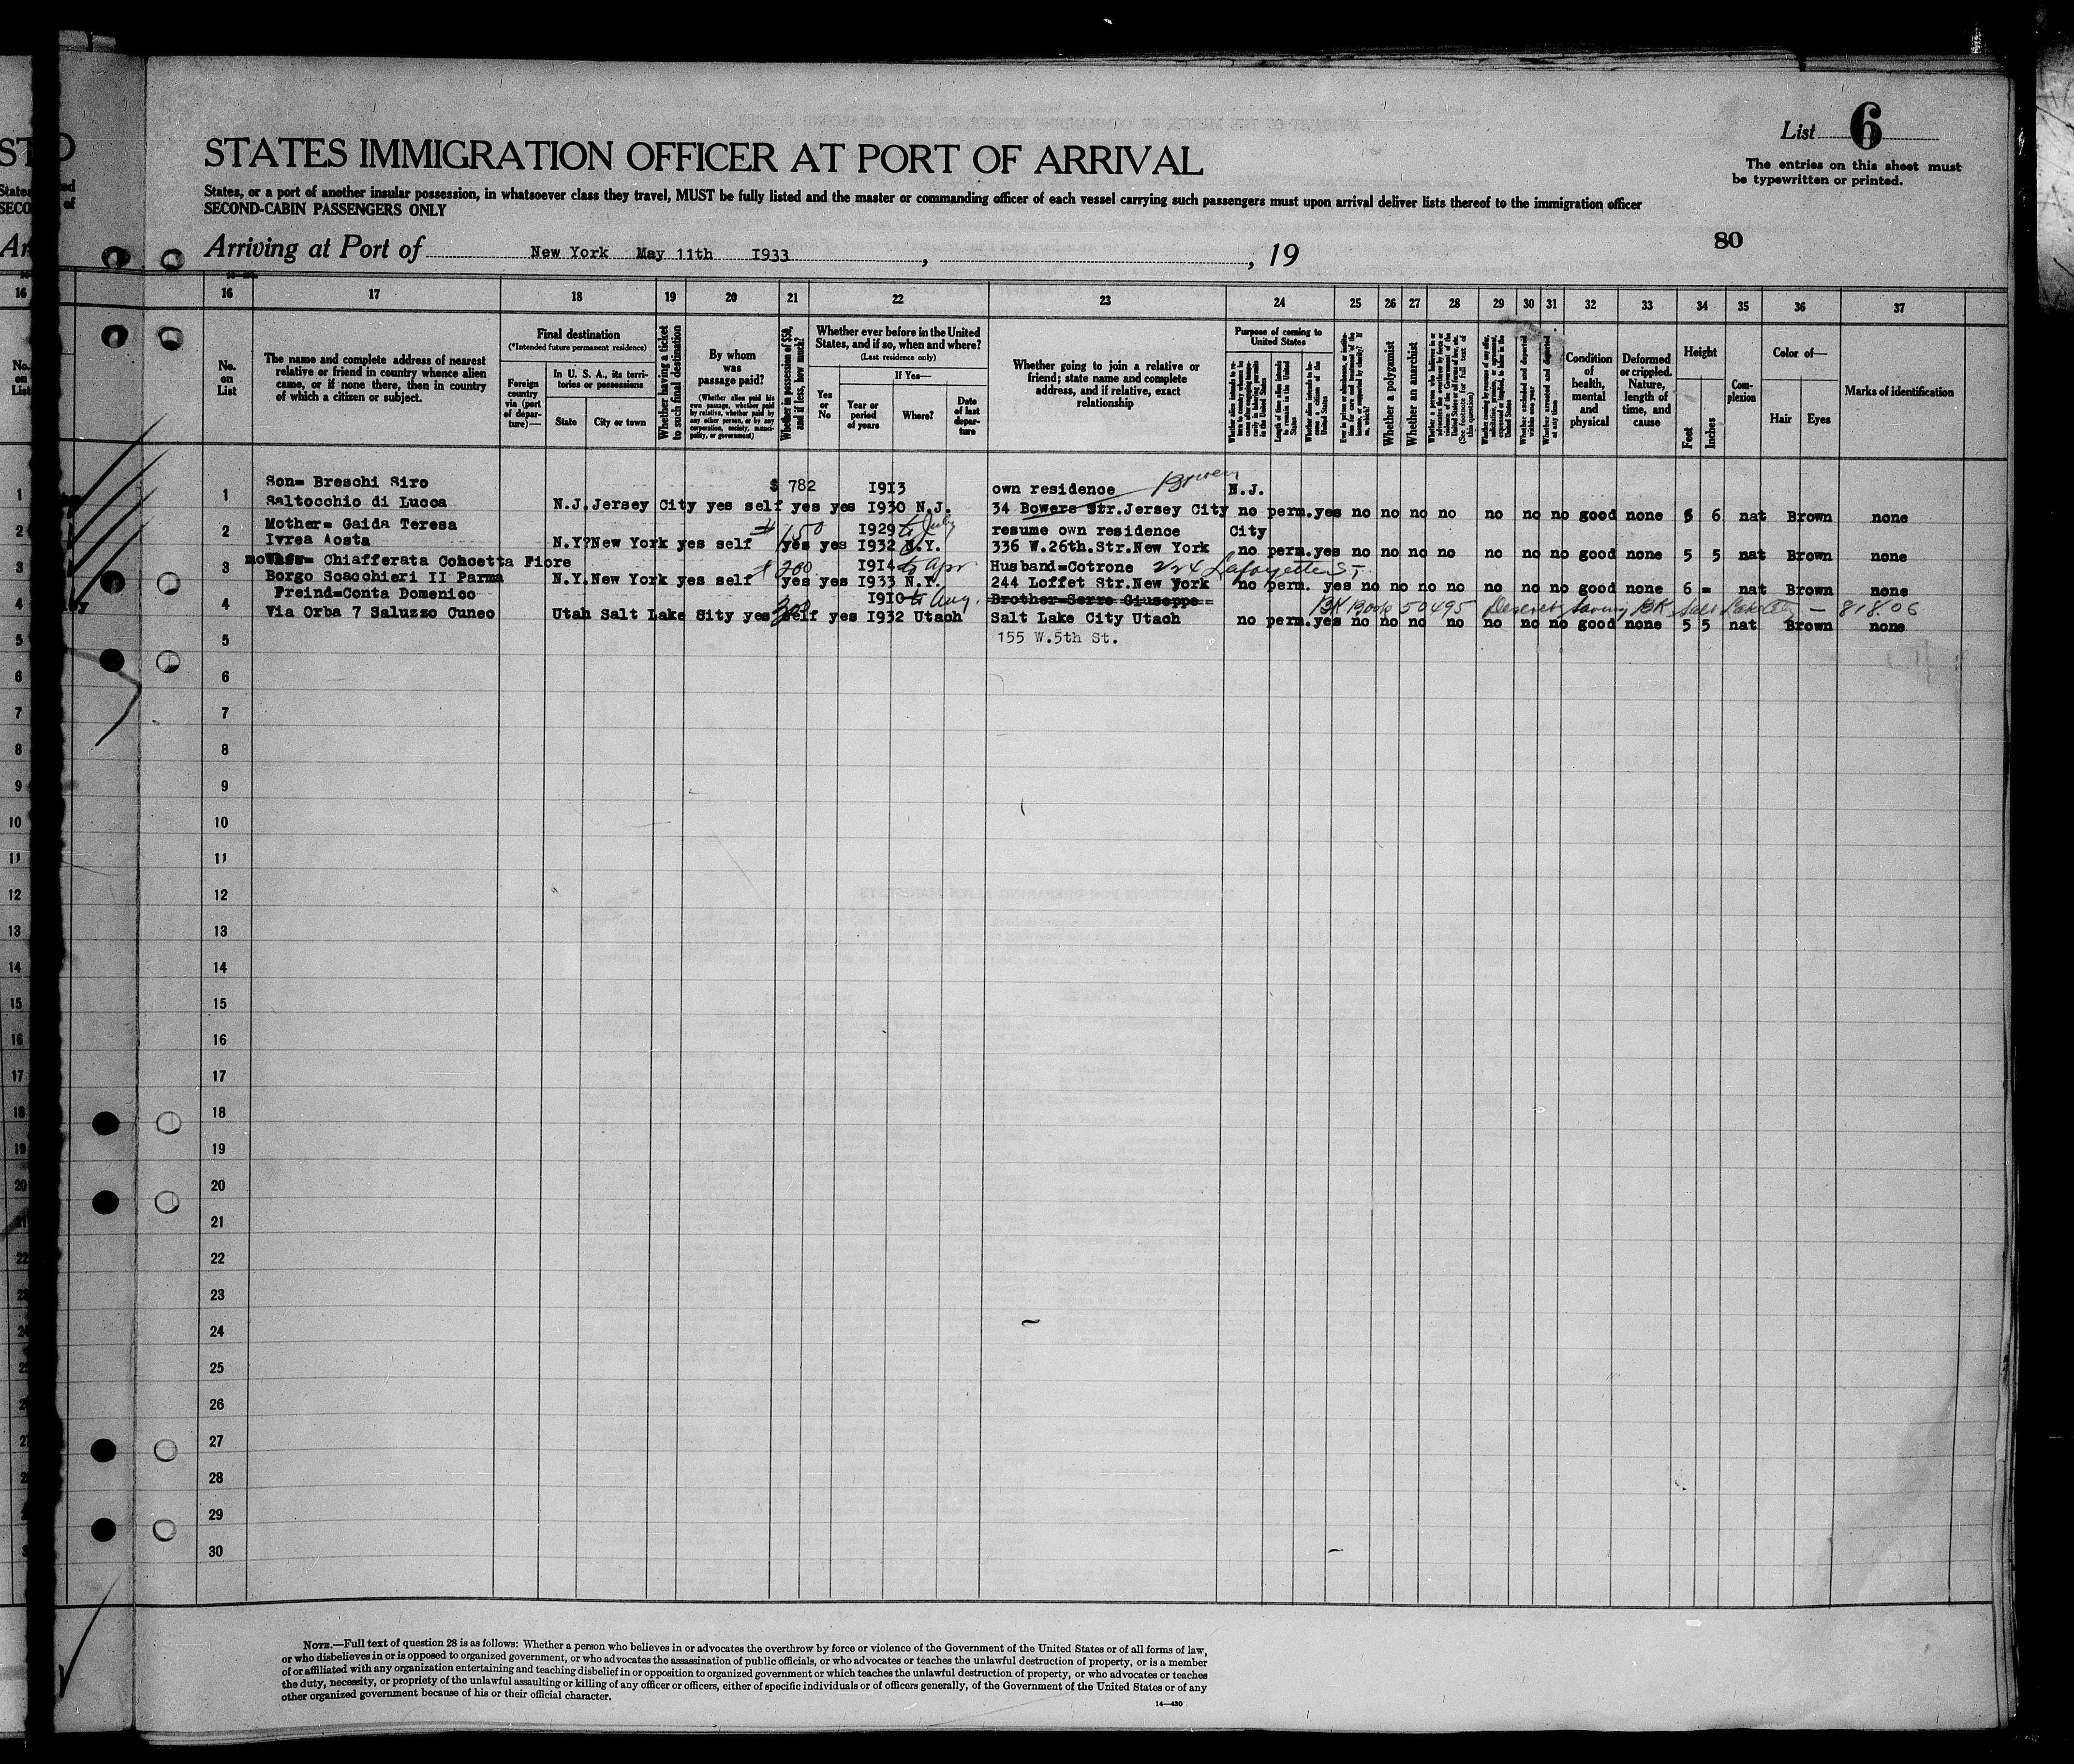 List 6
The entries on this sheet must
be typewritten or printed.
STATES IMMIGRATION OFFICER AT PORT OF ARRIVAL
States, or a port of another insular possession, in whatsoever class they travel, MUST be fully listed and the master or commanding officer of each vessel carrying such passengers must upon arrival deliver lists thereof to the immigration officer
SECOND-CABIN PASSENGERS ONLY
80
Arriving at Port of New York May 11th I933, , 19
16 17 18 19 20 21 22 23 24 25 26 27 28 29 30 31 32 33 34 35 36 37
No. on List
The name and complete address of nearest
relative or friend in country whence alien
came, or if none there, then in country
of which a citizen or subject.
Final destination
(*Intended future permanent residence)
Foreign
country
via (port
of depar-
ture)—
In U. S. A., its terri-
tories or possessions
State
City or town
Whether having a ticket
to such final destination
By whom
was
passage paid?
(Whether alien paid his
own passage, whether paid
by relative, whether paid by
any other person, or by any
corporation, society, munici-
pality, or government)
Whether in possession of $50,
and if less, how much?
Whether ever before in the United
States, and if so, when and where?
(Last residence only)
Yes
or
No
If Yes—
Year or
period
of years
Where?
Date
of last
depar-
ture
Whether going to join a relative or
friend; state name and complete
address, and if relative, exact
relationship
Purpose of coming to
United States
Length of time alien intends
to remain in the United
States
Whether alien intends to be-
come a citizen of the
United States
Whether a polygamist
Whether an anarchist
(See footnote for full text of
this question)
Whether excluded and deported
within one year
Whether arrested and deported
at any time
Condition
of
health,
mental
and
physical
Deformed
or crippled.
Nature,
length of
time, and
cause
Height
Feet
Inches
Com-
plexion
Color of—
Hair
Eyes
Marks of identification
Son= Breschi Siro $ 782 I9I3 own residence N.J.
1 Saltocchio di Lucca N.J. Jersey City yes self yes yes I930 N.J. 34 Bowers Str.Jersey City no perm.yes no no no no no no no good none 5 6 nat Brown none
Mother= Gaida Teresa 150 I929 to July resume own residence City
2 Ivrea Aosta N.Y? New York yes self yes yes I932 N.Y. 336 W.26th.Str.New York no perm.yes no no no no no no no good none 5 5 nat Brown none
mother= Chiafferata Concetta Fiore $ 200 I9I4 to Apr Husband=Cotrone 224 Lafayette ST.
3 Borgo Scacchieri II Parma N.Y. New York yes self yes yes I933 N.Y. 244 Loffet Str.New York no perm. yes no no no no no no no good none 6 = nat Brown none
Freind=Conta Domenico 300 I9I0 to Aug. Brother=Serre Giuseppe=
BK Book 50495 Deseret Saving BK Salt Lake City — 818.06
4 Via Orba 7 Saluzzo Cuneo Utah Salt Lake City yes self yes I932 Utach Salt Lake City Utach no perm.yes no no no no no no no good none 5 5 nat Brown none
5 155 W.5th St.
6
7
8
9
10
11
12
13
14
15
16
17
18
19
20
21
22
23
24
25
26
27
28
29
30
NOTE.—Full text of question 28 is as follows: Whether a person who believes in or advocates the overthrow by force or violence of the Government of the United States or of all forms of law,
or who disbelieves in or is opposed to organized government, or who advocates the assassination of public officials, or who advocates or teaches the unlawful destruction of property, or is a member
of or affiliated with any organization entertaining and teaching disbelief in or opposition to organized government or which teaches the unlawful destruction of property, or who advocates or teaches
the duty, necessity, or propriety of the unlawful assaulting or killing of any officer or officers, either of specific individuals or of officers generally, of the Government of the United States or of any
other organized government because of his or their official character.
14—430